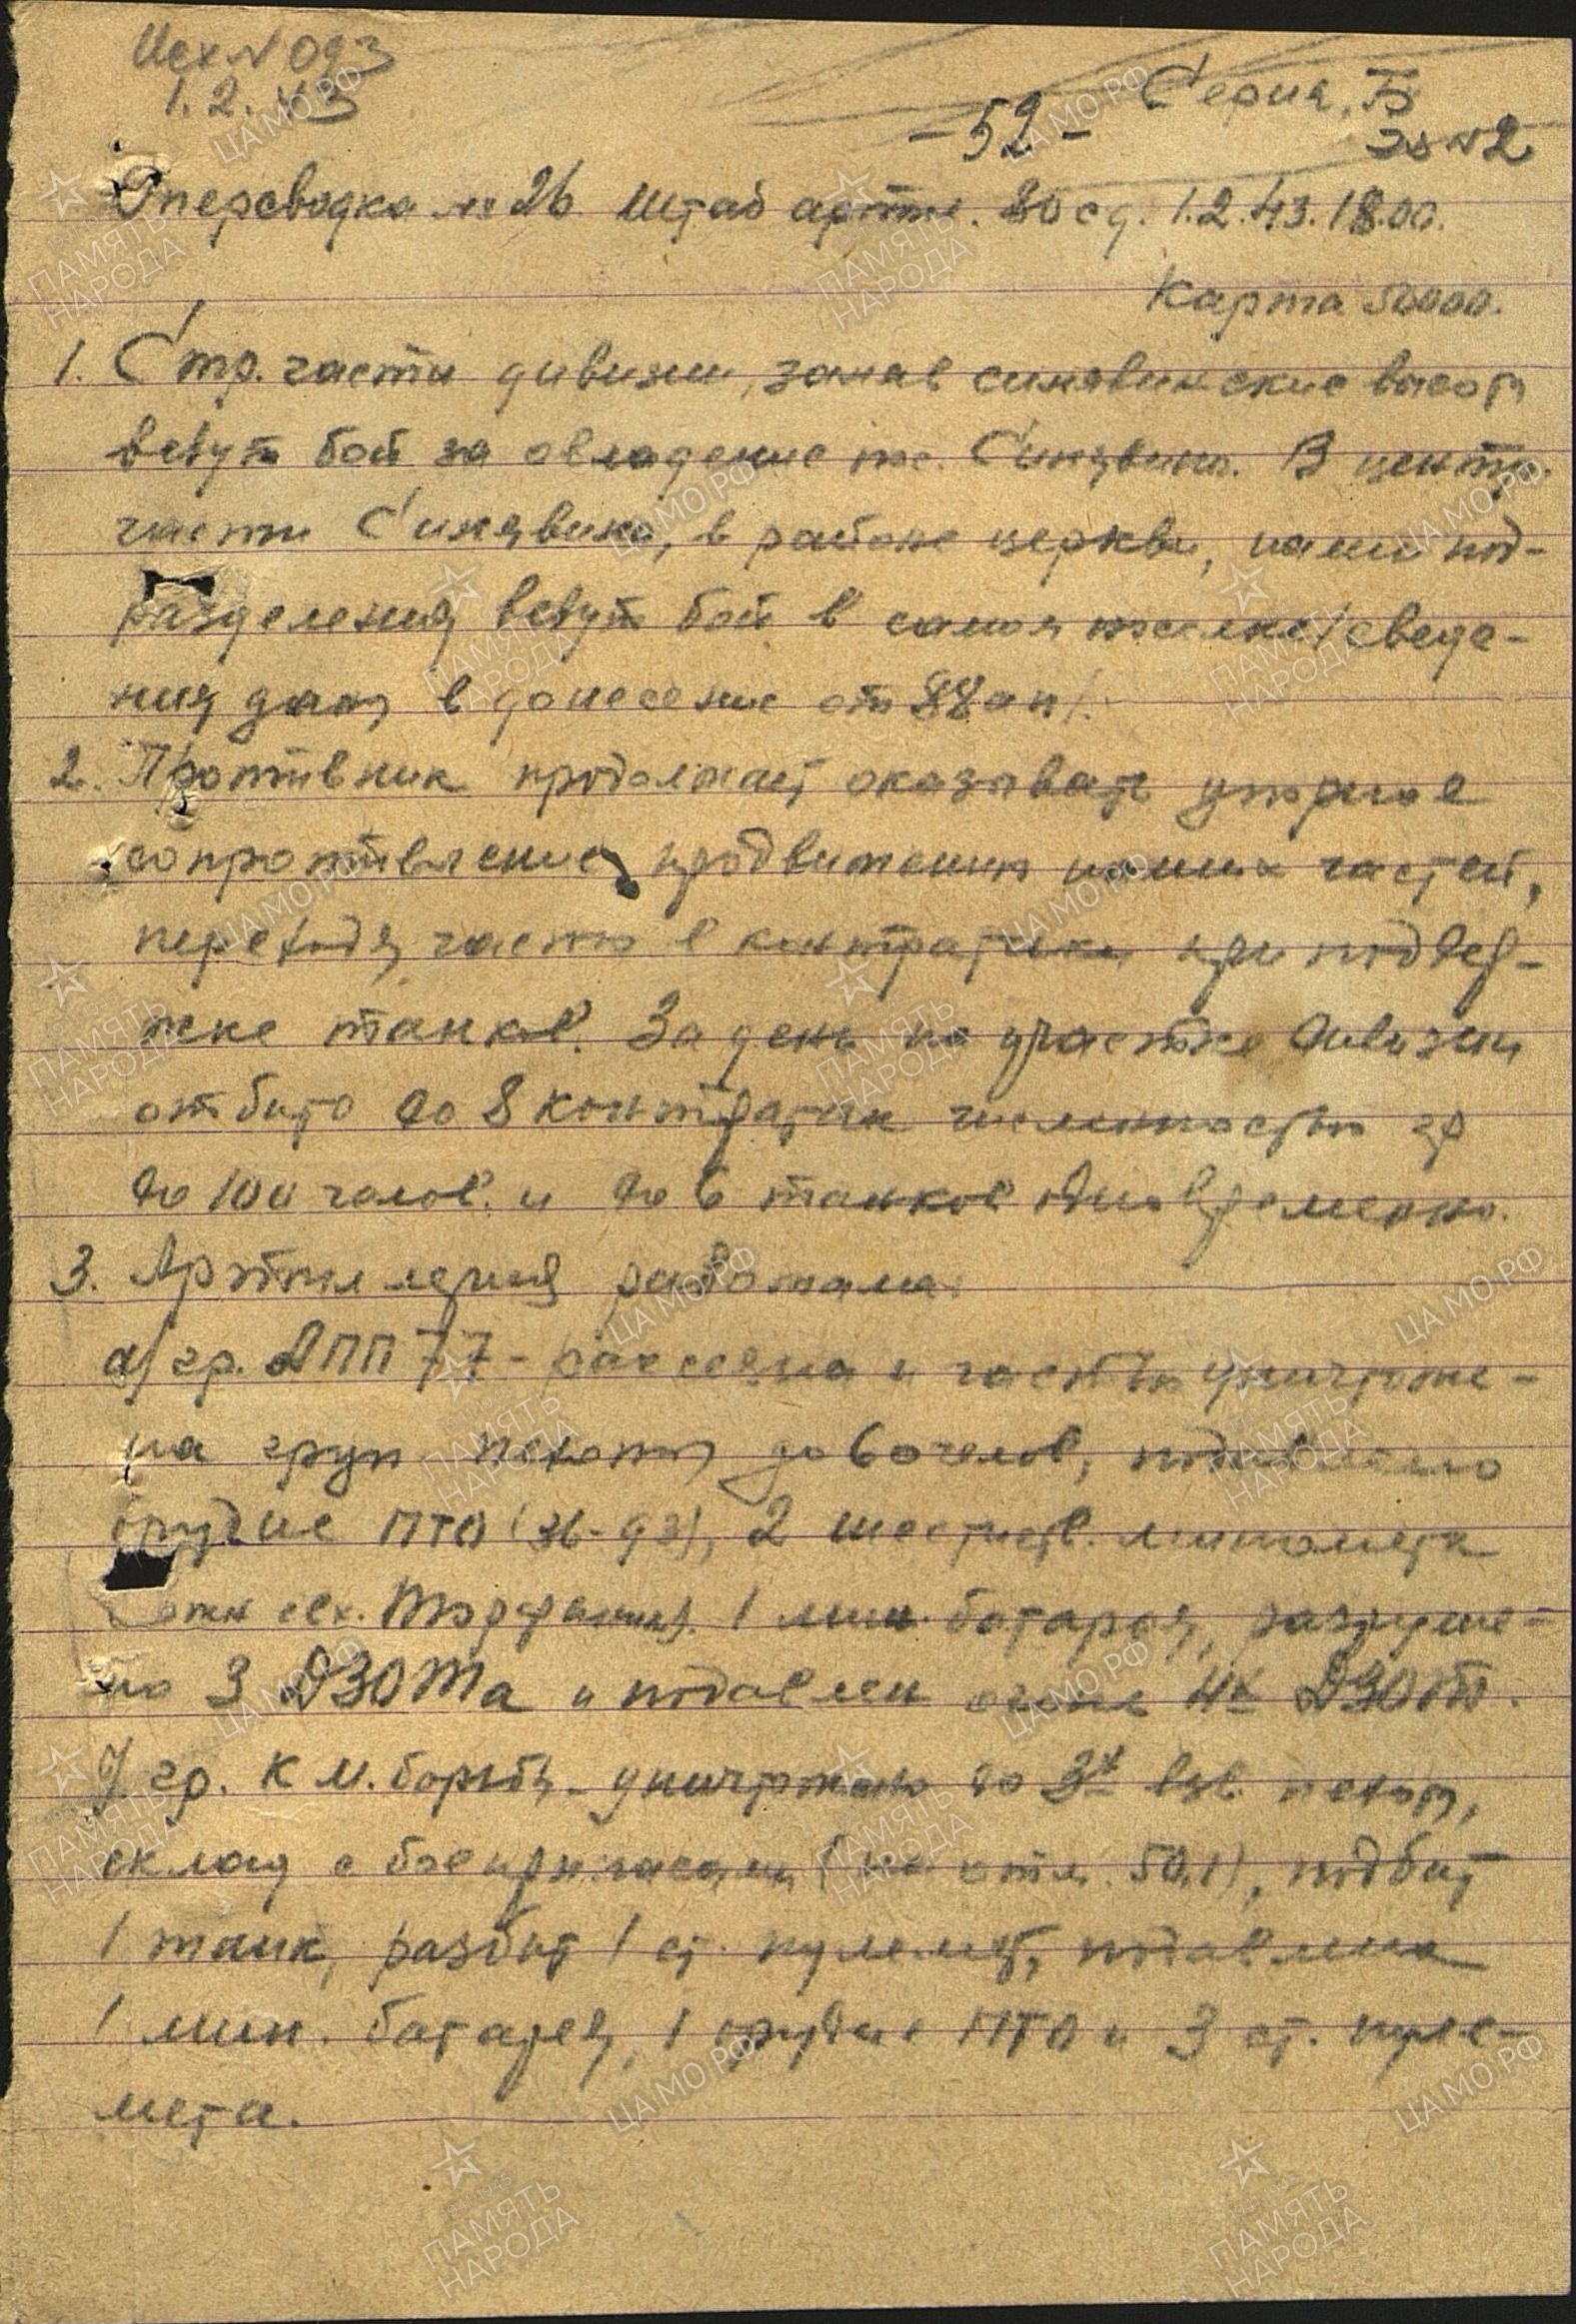 Исх N 093
1.2.43
Серия Б
- 52 -
Эк N 2
Оперсводка № 26. Штаб артил. 80 сд. 1.2.43. 18.00.
Карта 50000.
1. Стр. части дивизии, заняв синявинские высоты
ведут бой за овладение Синявино. В центр.
части Синявино, в районе церкви, наши под-
разделения ведут бой в самом поселке /сведе-
ния даны в донесение от 88 ап/.
2. Противник продолжает оказывать упорное
сопротивление продвижению наших частей,
переходя часто в контратаки при поддер-
жке танков. За день на участке дивизии
отбито до 8 контратак численностью гр
до 100 челов. и до 6 танков одновременно.
3. Артиллерия работала:
а/ гр. ДПП 77 - рассеяна и частью уничтоже-
на груп пехоты до 60 челов, подавлено
орудие ПТО (36-93), 2 шестиств. миномета
сев. Торфяник. 1 мин. батарея, разруше-
но 3 ДЗОТа и подавлен огонь 4х ДЗОТ.
гр. К М. борьбы - уничтожено до 3х взв. пехоты,
склад с боеприпасами (на отм. 50,1), подбит
1 танк, разбит 1 ст. пулемет, подавлена
1 мин. батарея, 1 орудие ПТО и 3 ст. пуле-
мета.